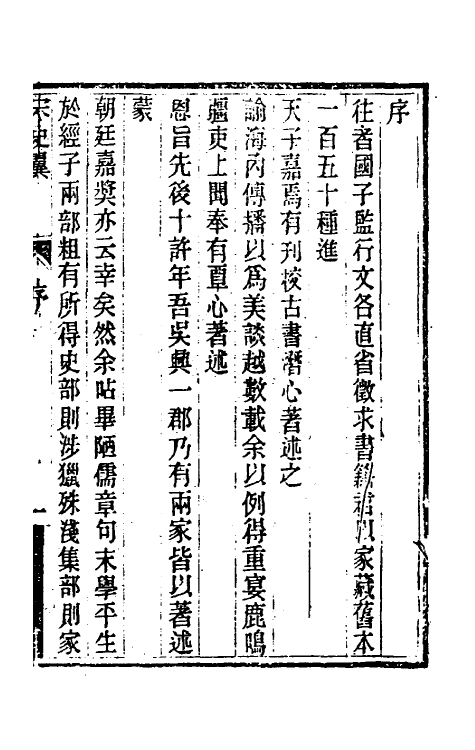 序
往者國子監行文各直省徵求書籍君以家藏舊本
一百五十種進
天子嘉焉有刊校古書潛心著述之
諭海內傳播以爲美談越數載余以例得重宴鹿鳴
疆吏上聞奉有覃心著述
恩旨先後十許年吾吳興一郡乃有兩家皆以著述
蒙
朝廷嘉奬亦云幸矣然余呫畢陋儒章句末學平生
於經子兩部粗有所得史部則涉獵殊淺集部則家
宋史翼
序
一